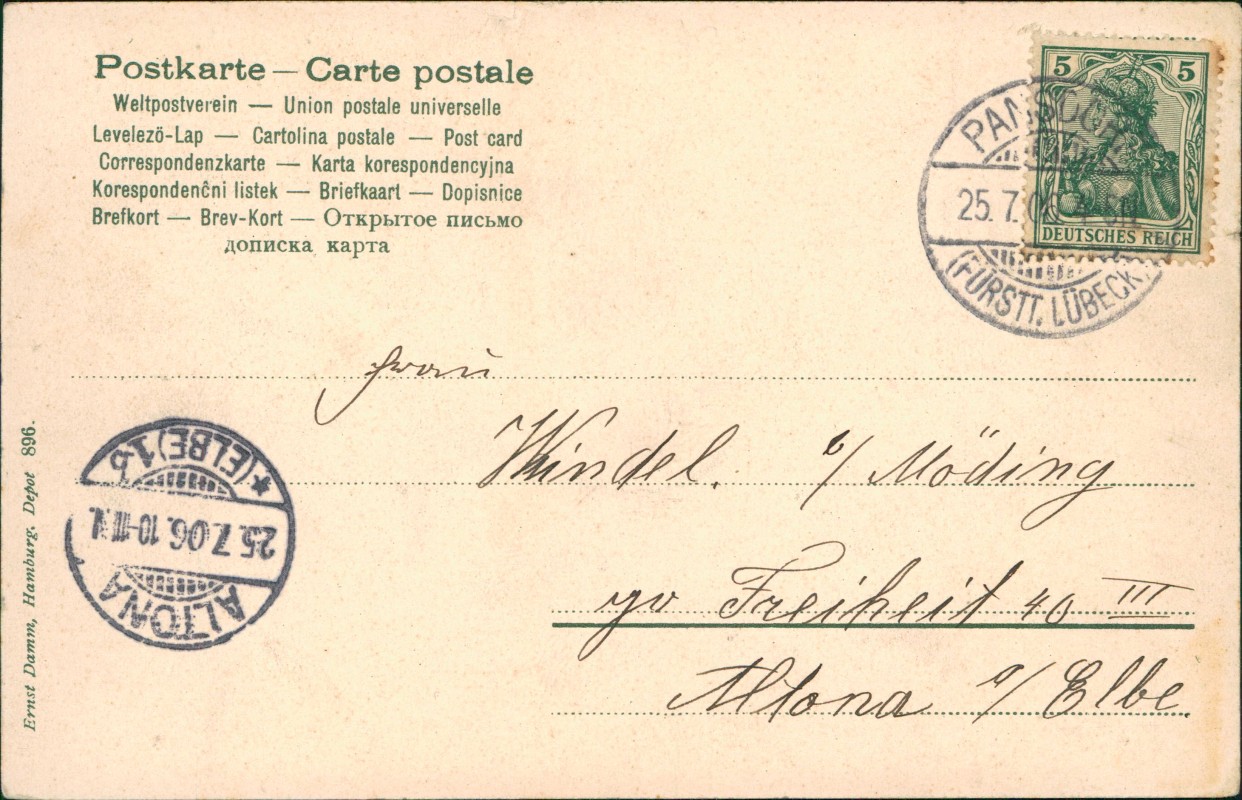 Postkarte — Carte postale
Weltpostverein — Union postale universelle
Levelezö-Lap — Cartolina postale — Post card
Correspondenzkarte — Karta korespondencyjna
Korespondenĉni listek — Briefkaart — Dopisnice
Brefkort — Brev-Kort — Открытое письмо
дописка карта
5 5
DEUTSCHES REICH
PANSDORF
25.7.06
(FÜRSTT. LÜBECK)
Frau
Windel. b/ Möding
gr Freiheit 40 III
Altona a/ Elbe.
ALTONA
25.7.06.10-11N.
*(ELBE)1b
Ernst Damm, Hamburg. Depot 896.